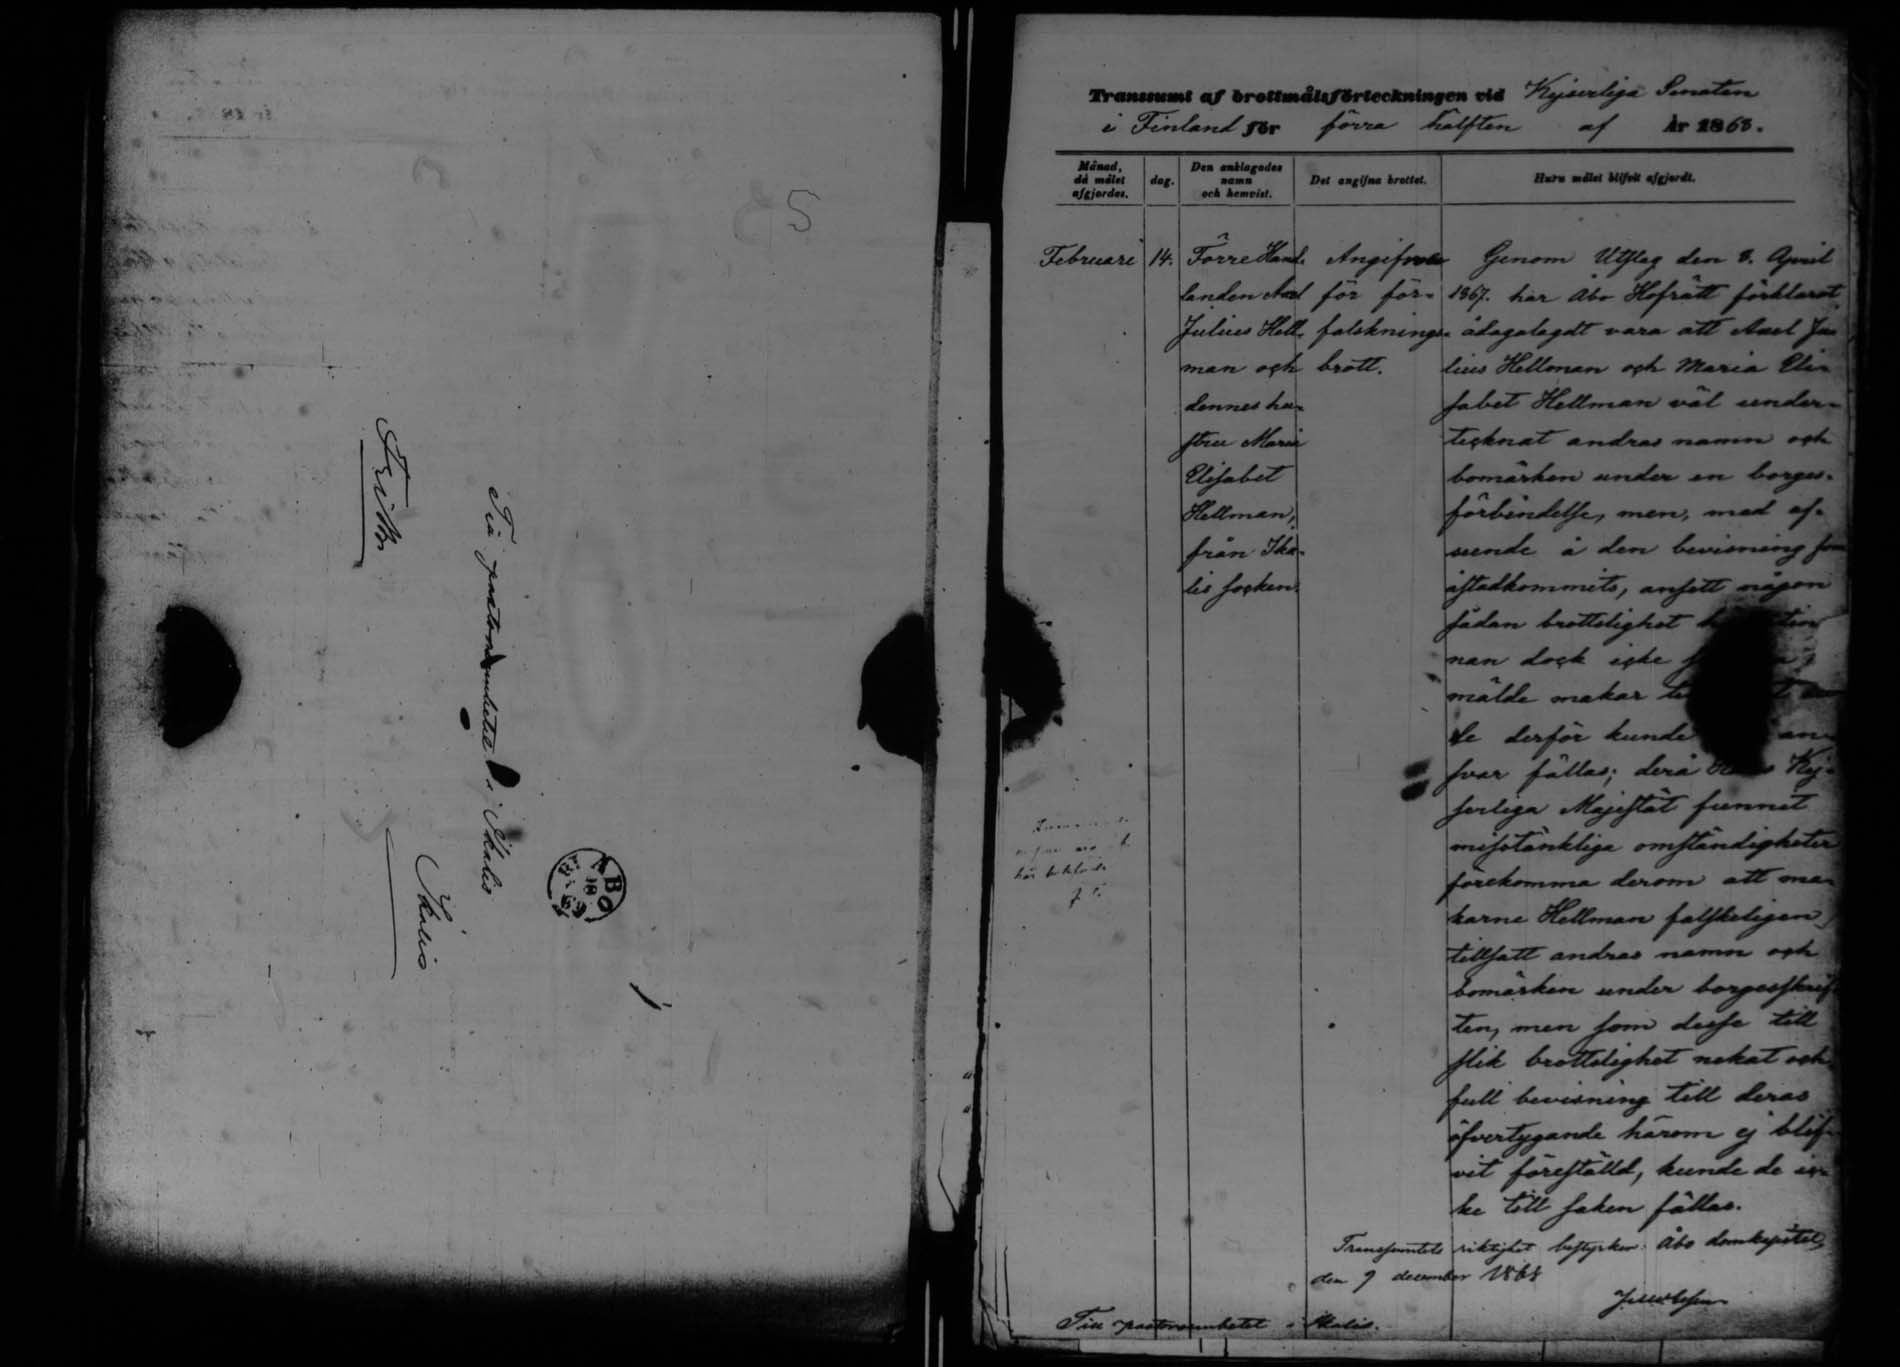 5
Fribr.
Till pastorsembetet i Ikalis
Ikalis
ABO
18
69
Transsumt af brottmålsförteckningen vid Kejserliga Senaten
i Finland för förra hälften af år 1868.
Månad,
då målet
afgjordes.
dag.
Den anklagades
namn
och hemvist.
Det angifna brottet.
Huru målet blifvit afgjordt.
Februari
14.
Förre Hand-
landen Axel
Julius Hell-
man och
dennes hu-
stru Maria
Elisabet
Hellman,
från Ika-
lis socken.
Angifvne
för för-
falsknings-
brott.
Genom Utslag den 8. April
1867. har Åbo Hofrätt förklarat
ådagalagdt vara att Axel Ju-
lius Hellman och Maria Eli-
sabet Hellman väl under-
tecknat andras namn och
bomärken under en borges-
förbindelse, men, med af-
seende å den bevisning som
åstadkommits, ansett någon
sådan brottslighet
nan dock icke
mälde makar
de derför kunde an-
svar fällas; derå Kej-
serliga Majestät funnit
misstänkliga omständigheter
förekomma derom att ma-
karne Hellman falskeligen
tillsatt andras namn och
bomärken under borgesskrif-
ten, men som desse till
slik brottslighet nekat och
full bevisning till deras
öfvertygande härom ej blif-
vit föreställd, kunde de ic-
ke till saken fällas.
Transsumtets riktighet bestyrker. Åbo domkapitel,
den 9 december 1868
Till pastorsembetet i Ikalis.